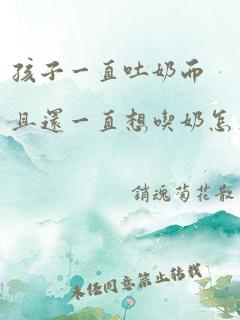 孩子一直吐奶而
且還一直想喫奶怎
銷魂菊花散
未经同意禁止转载